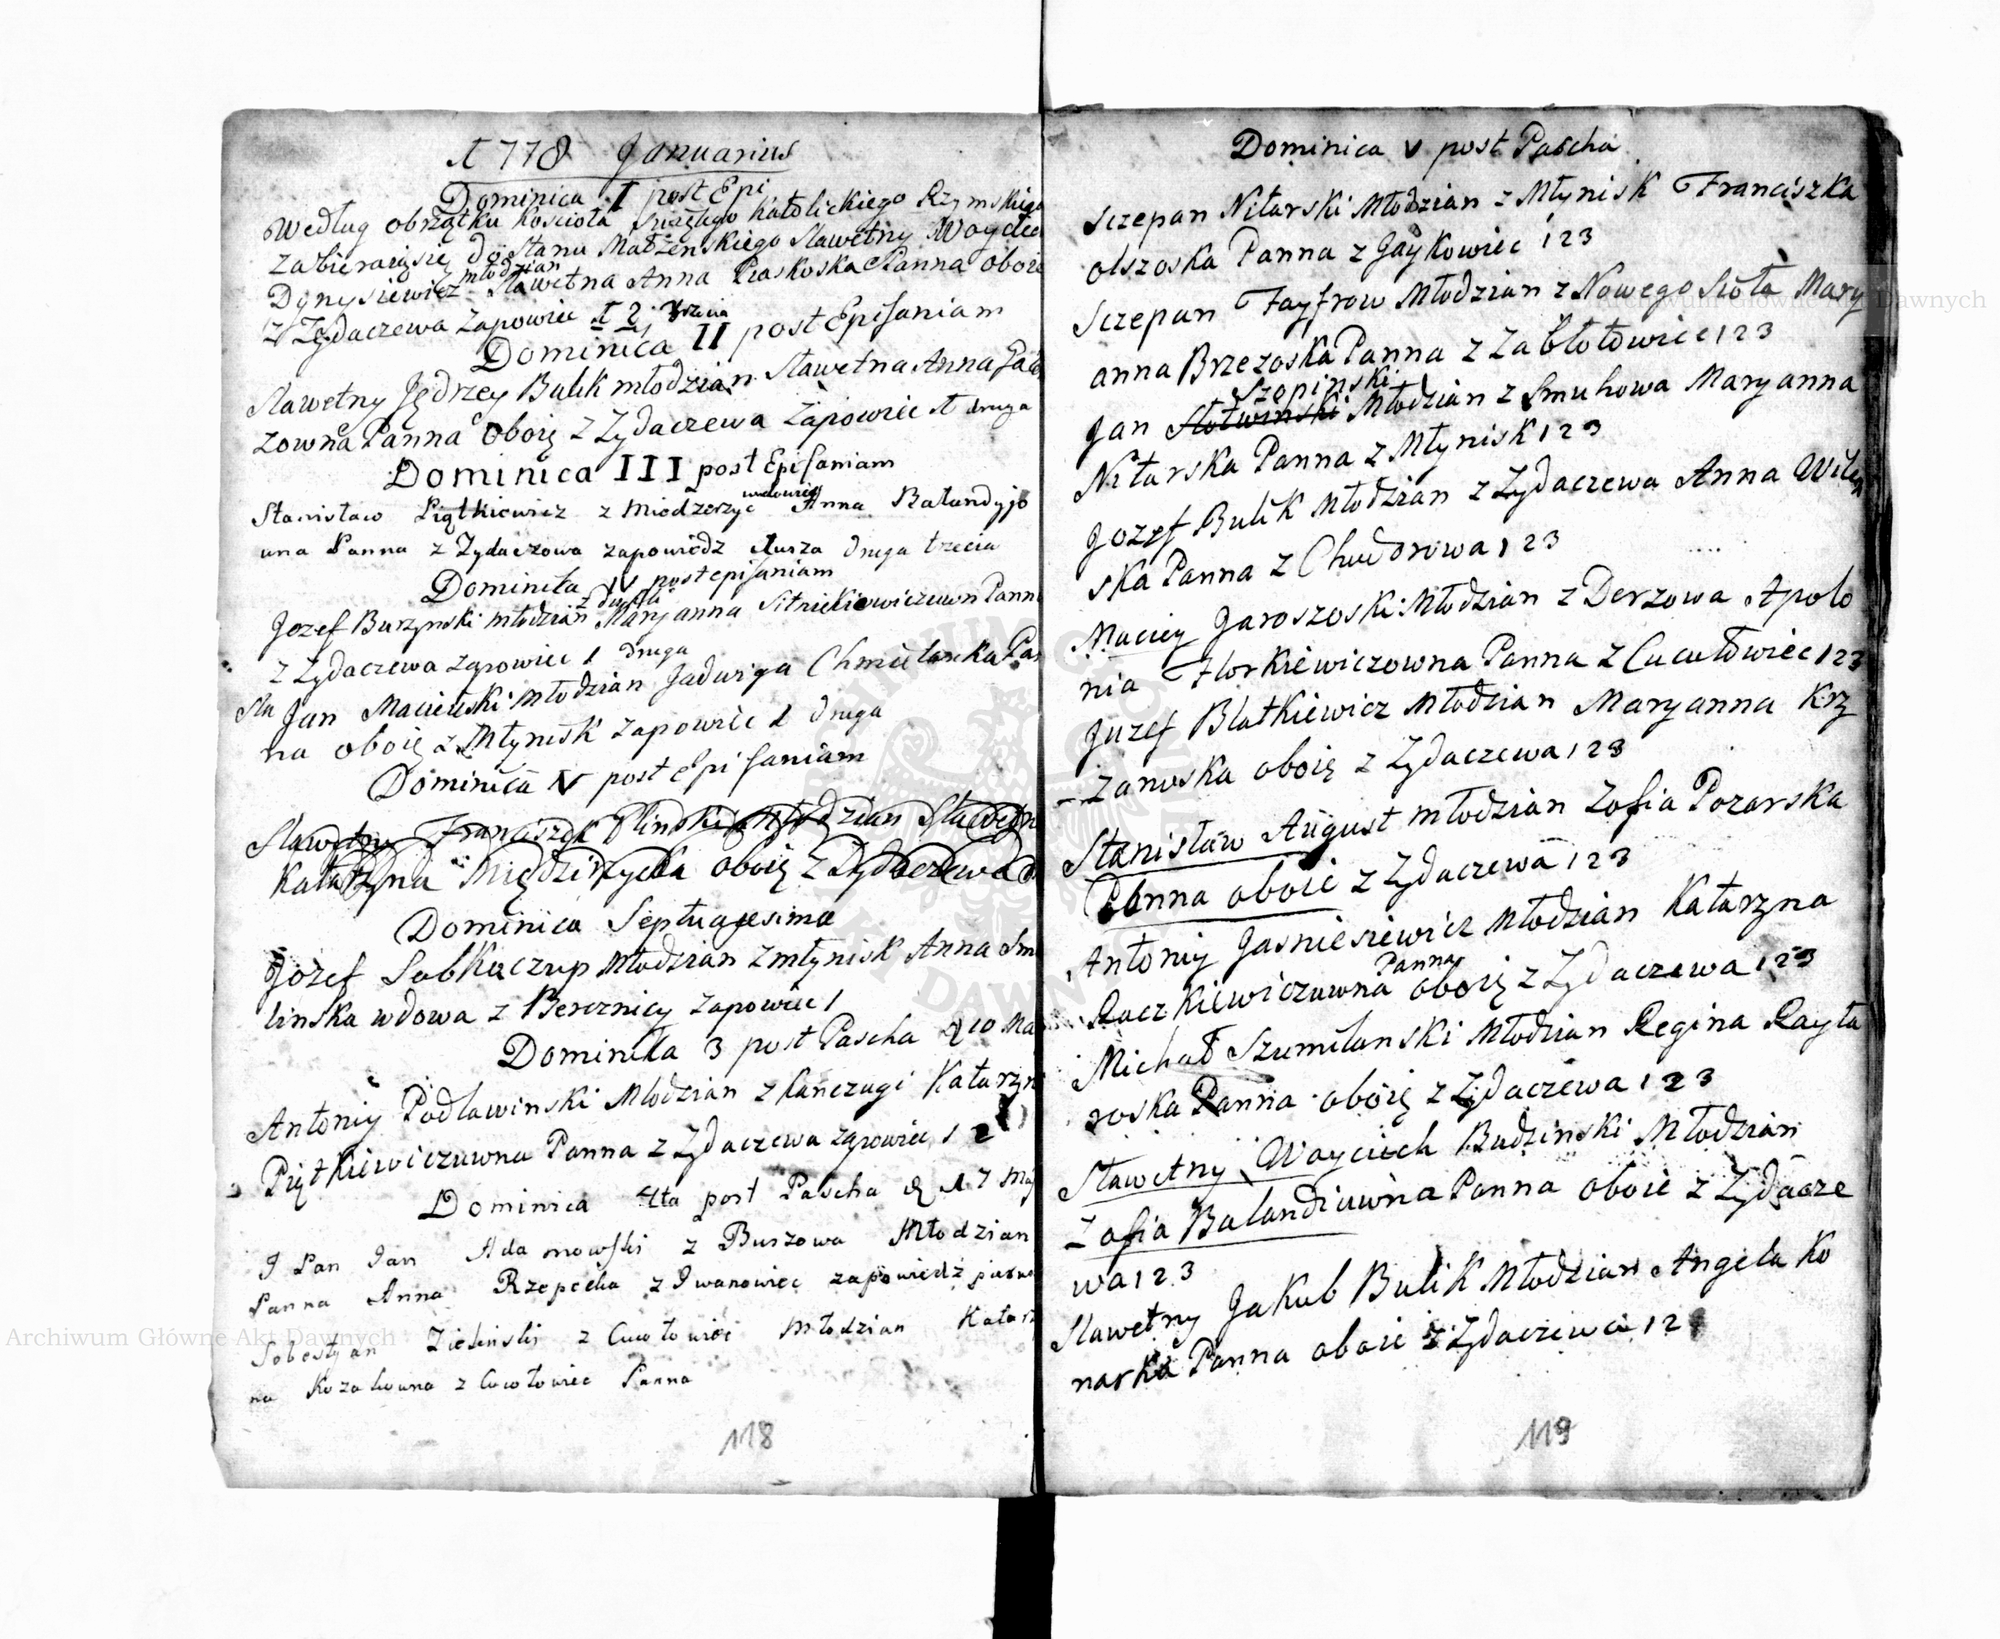 1778 Januarius
Dominica I post Epi
Według obrządku kościoła Swiętego Katolickiego Rzymskiego
zabieraią się do stanu Małżenskiego Sławetny Woycie
Dynysiewicz młodzian Sławetna Anna Piaskoska Panna oboie
z Zydaczewa zapowiec 1 2 trzecia
Dominica II post Epifaniam
Sławetny Jędrzey Bulik młodzian Sławetna Anna
zowna Panna oboię z Zydaczewa zapowiec 1 druga
Dominica III post Epifaniam
Stanisław Piątkiewicz z Miedzerzyc wdowiec Anna Bałandyjo
wna Panna z Zydaczowa zapowiedz druga trzecia
Dominika IV post epifaniam
Jozef Burzynski młodzian Maryanna Sitnickiewiczuwn Panna
z Zydaczewa zapowiec 1 druga
Sła Jan Macieiuski Młodzian Jadwiga Chmielaska Pan
na oboię z Młynisk zapowiec 1 druga
Dominica V post Epifaniam
Sławetny Franciszek Plinski młodzian Sławetna
Katarzyna Międzinycka oboię z Zydaczewa
Dominica Septuagesima
Jozef Sobkuczup Młodzian z młynisk Anna Sm
linska wdowa z Bereznicy zapowiec 1
Dominika 3 post Pascha d 10 Ma
Antoniy Podlawinski Młodzian z Kanczugi Katarzyn
Piątkiewiczuwna Panna z Zydaczewa zapowiec 1 2
Dominica 4ta post Pascha d 17 Maj
J Pan Jan Adamowski z Buszowa Młodzian
Panna Anna Rzepecka z Iwanowiec zapowiedź
Sobestyan Zielinski z Cucułowiec Młodzian Katarzy
na Kozakowna z Cucułowiec Panna
118
Dominica V post Pascha
Sczepan Nitarski Młodzian z Młynisk Franciszka
olszoska Panna z Gaykowiec 1 2 3
Sczepan Fayfrow Młodzian z Nowego Sioła Mary
anna Brzezoska Panna z Zabłotowiec 1 2 3
Szopinski
Jan Słotwinski Młodzian z Smuhowa Maryanna
Nitarska Panna z Młynisk 1 2 3
Jozef Bulik Młodzian z Zydaczewa Anna Wilczy
ska Panna z Chudorowa 1 2 3
Maciey Jaroszoski Młodzian z Derzowa Apolo
nia Florkiewiczowna Panna z Cucułowiec 1 2 3
Juzef Blatkiewicz Młodzian Maryanna Krz
zanoska oboię z Zydaczewa 1 2 3
Stanisław August Młodzian Zofia Pozarska
Panna oboie z Zydaczewa 1 2 3
Antoniy Jasniesiewicz Młodzian Katarzyna
Raczkiewiczuwna Panna oboię z Zydaczewa 1 2 3
Michał Szumilanski Młodzian Regina Rayta
roska Panna oboię z Zydaczewa 1 2 3
Sławetny Woyciech Budzinski Młodzian
Zofia Balandiuwna Panna oboie z Zydacze
wa 1 2 3
Sławetny Jakub Bulik Młodzian Angela Ko
narska Panna oboie z Zydaczewa 1 2
119
Archiwum Główne Akt Dawnych
Archiwum Główne Akt Dawnych
ARCHIWUM GŁÓWNE AKT DAWNYCH